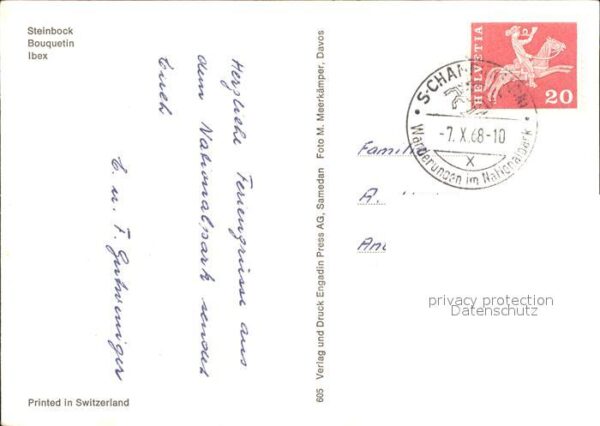 Steinbock
Bouquetin
Ibex
Herzliche Feriengrüsse aus
dem Nationalpark sendet
Euch
E. u. F. Gutweniger
Printed in Switzerland
605 Verlag und Druck Engadin Press AG, Samedan Foto M. Meerkämper, Davos
HELVETIA
20
S-CHAN
-7.X.68-10
X
Wanderungen im Nationalpark
Famili
A.
An
privacy protection
Datenschutz